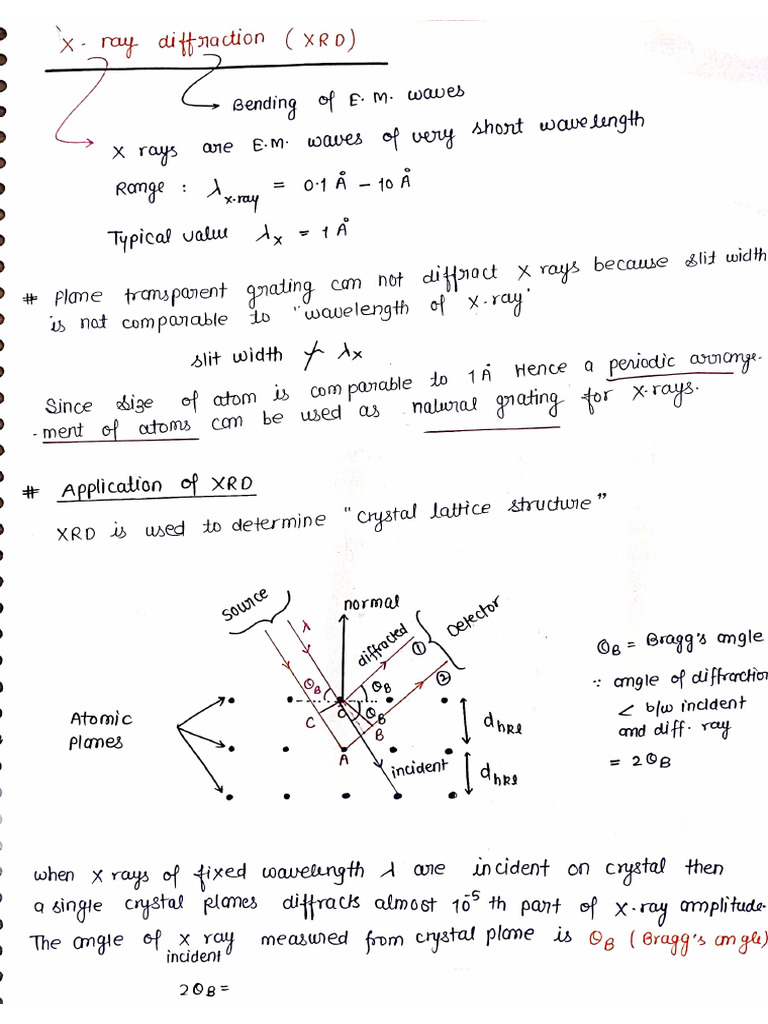 X-ray diffraction (XRD)
Bending of E.M. waves
X rays are E.M. waves of very short wavelength
Range : λx-ray = 0.1 Å – 10 Å
Typical value λx = 1 Å
# Plane transparent grating can not diffract X rays because slit width
is not comparable to "wavelength of X-ray'
slit width ≁ λx
Since size of atom is comparable to 1 Å Hence a periodic arrange-
-ment of atoms can be used as natural grating for X-rays.
# Application of XRD
XRD is used to determine "Crystal lattice structure"
source
λ
normal
diffracted
①
②
Detector
θB = Bragg's angle
∵ angle of diffraction
∠ b/w incident
and diff. ray
= 2θB
Atomic
Planes
θB
θB
θB
O
C
B
A
incident
dhkl
dhkl
when X rays of fixed wavelength λ are incident on crystal then
a single crystal planes diffracts almost 10⁻⁵ th part of X-ray amplitude.
The angle of X ray measured from crystal plane is θB (Bragg's angle)
incident
2θB =